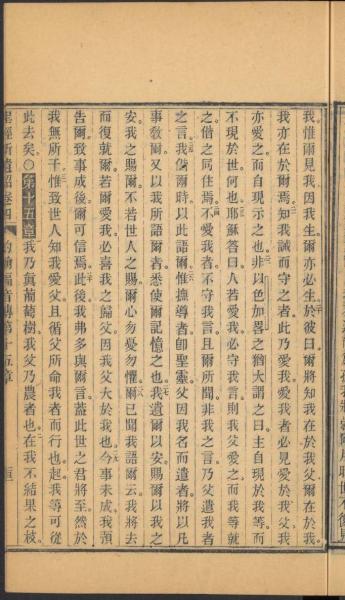 我惟爾見我因我生爾亦必生於彼日爾將知我在於我父爾在於我
我亦在於爾焉知我誡而守之者此乃愛我愛我者必見愛於我父我
亦愛之而自現示之也非以色加畧之猶大謂之曰主自現於我等而
不現於世何也耶穌答曰人若愛我必守我言則我父愛之而我等就
之偕之同住焉不愛我者不守我言且爾所聞非我之言乃父遣我者
之言我偕爾時以此語爾惟撫導者卽聖靈父因我名而遣者將以凡
事敎爾又以我所語爾者悉使爾記憶之也我遺爾以安賜爾以我之
安我之賜爾不若世人之賜爾心勿憂勿懼爾已聞我語爾云我將去
而復就爾若爾愛我必喜我之歸父因我父大於我也今事未成我預
告爾致事成後爾可信焉此後我弗多與爾言蓋此世之君將至然於
我無所干惟致世人知我愛父且循父所命我者而行也起我等可從
此去矣○第十五章我乃眞葡萄樹我父乃農者也在我不結果之枝
遺詔卷四 約翰福音傳第十五章